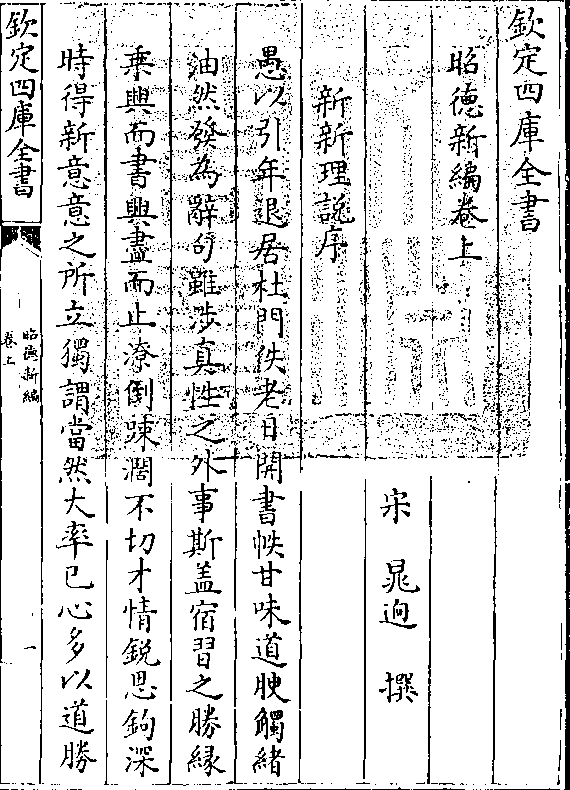 欽定四庫全書
昭德新編卷上
宋 晁迥 撰
新新理說序
愚以引年退居杜門佚老日開書帙甘味道腴觸緒
油然發為辭句雖涉真性之外事斯蓋宿習之勝緣
乗興而書興盡而止潦倒踈濶不切才情銳思鉤深
時得新意意之所立獨謂當然大率已心多以道勝
欽定四庫全書
昭德新編
卷上
一